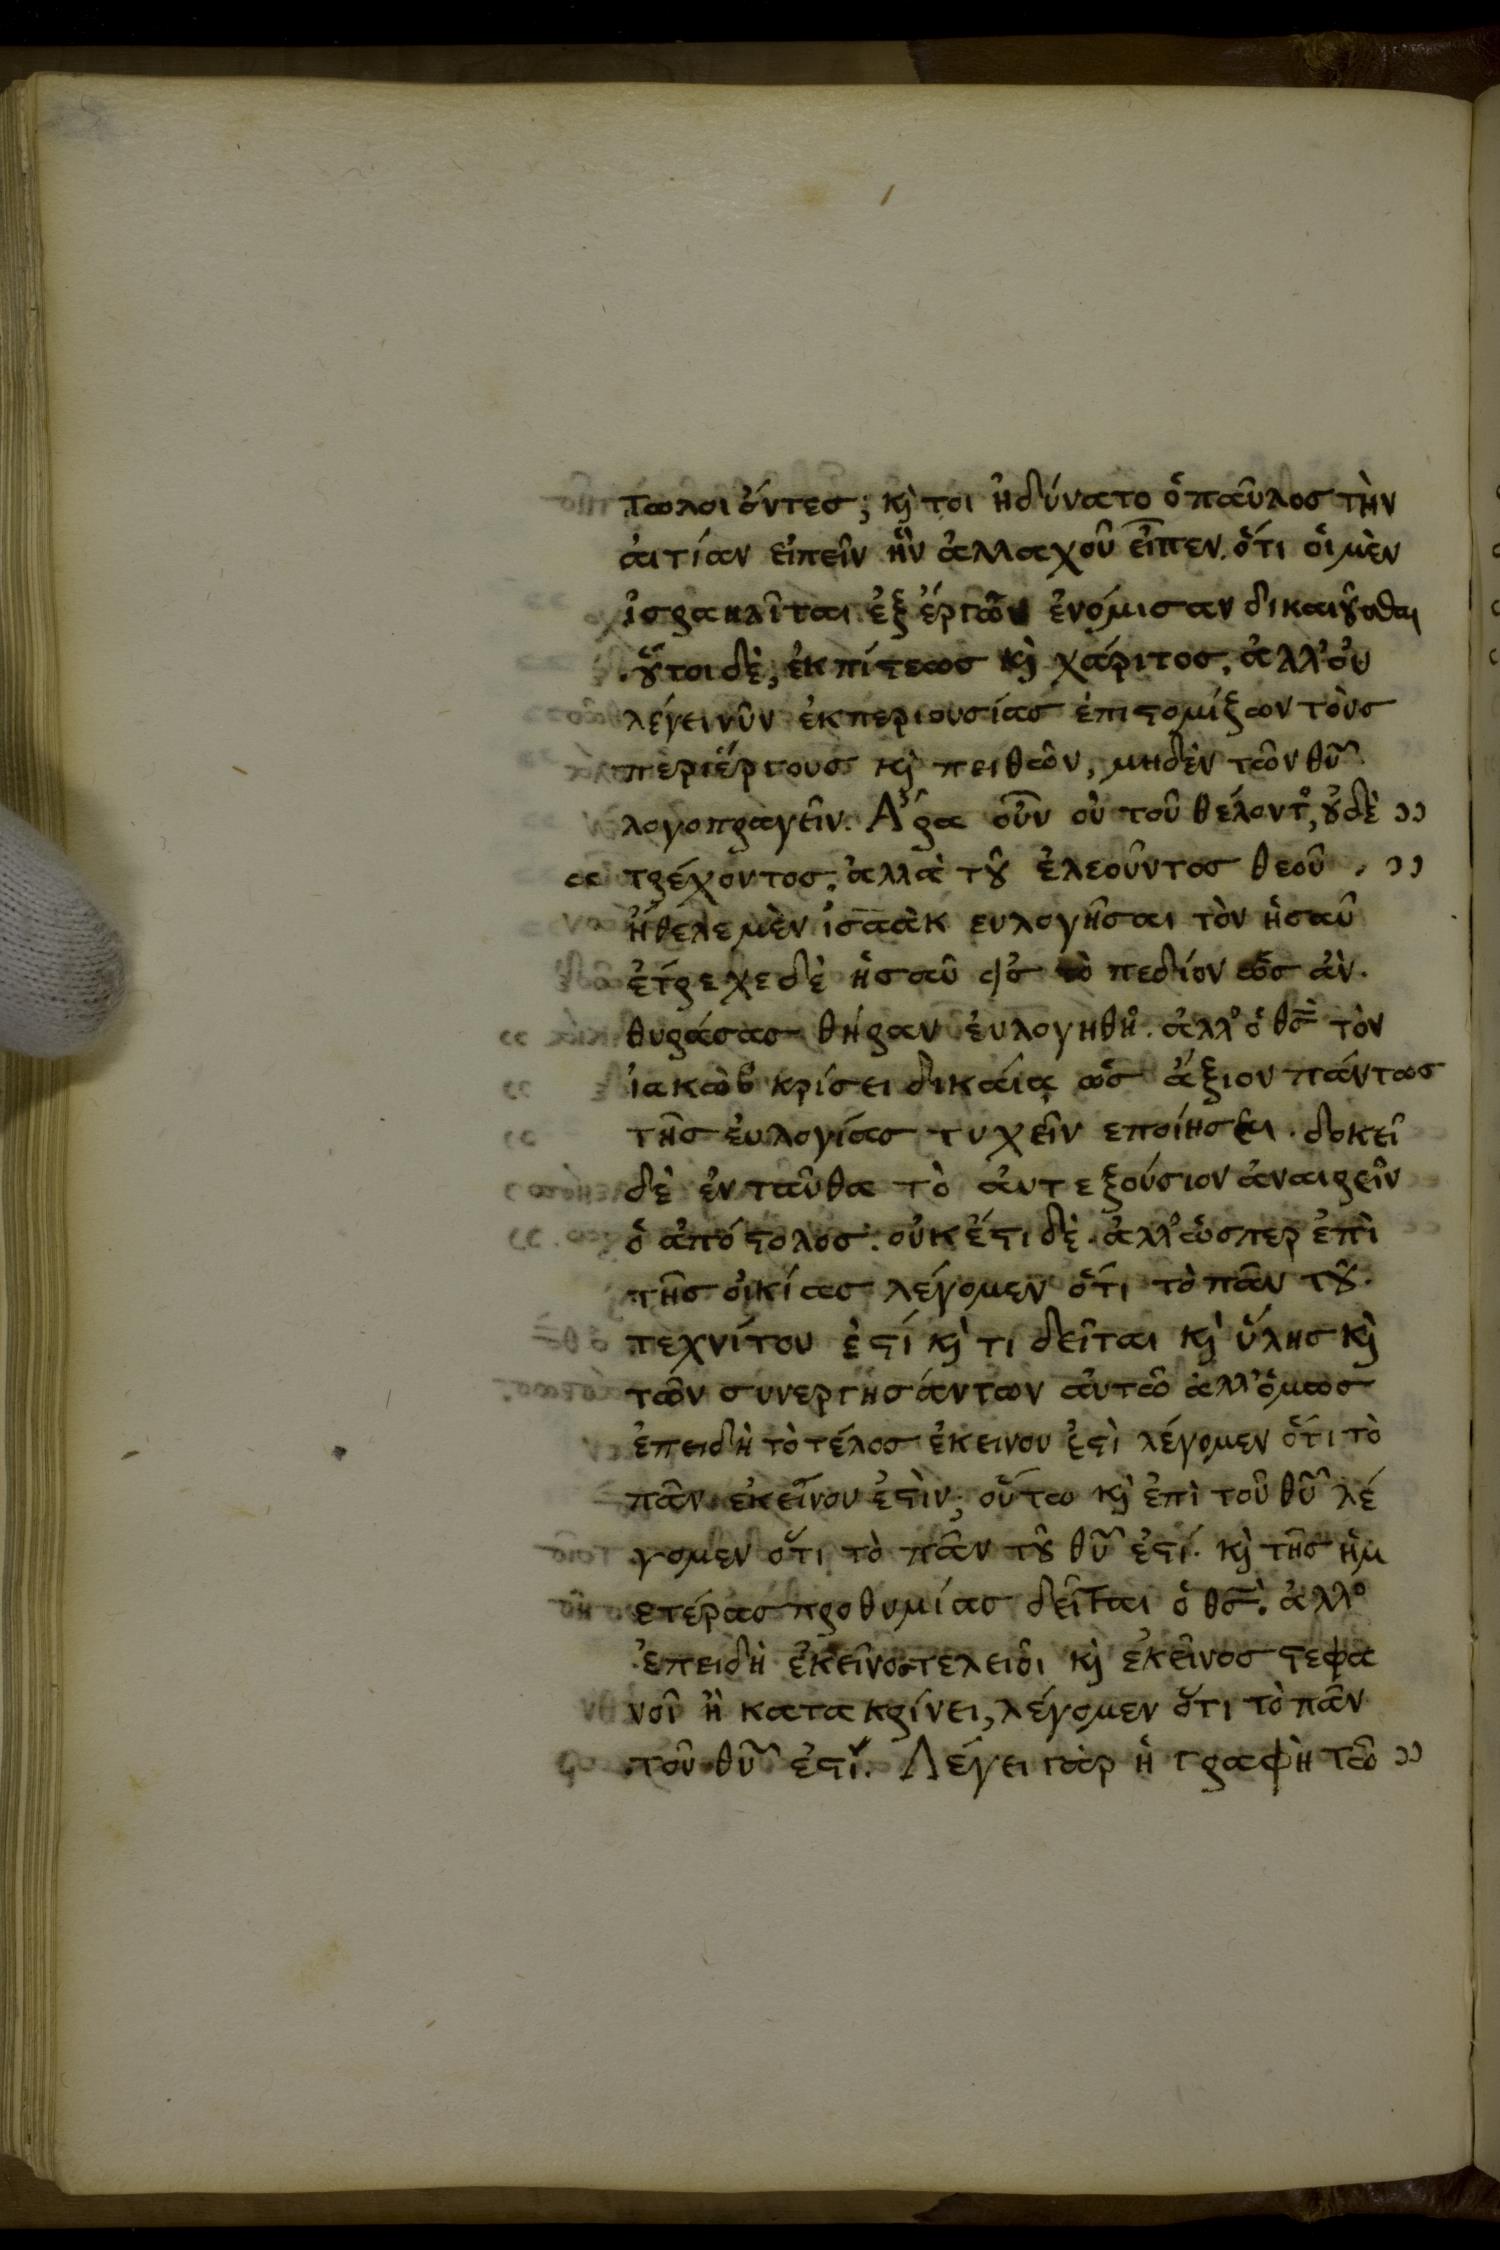 τωλοι ὄντες; κὶ τοι ἠδύνατο ὁ παῦλος τὴν
ἀιτίαν εἰπεῖν ἣν ἀλλαχοῦ εἶπεν. ὅτι ὁι μὲν
ἰσραηλῖται ἐξ ἔργων ἐνόμισαν δικαιȣ͂σθαι
ȣ̔́τοι δὲ, ἐκ πίϛεως κὶ χάριτος, ἀλλ' ὀυ
λέγει νῦν ἐκ περιουσίας ἐπιϛομίξων τὸυς
περιέργους κὶ πειθῶν, μηδὲν τῶν θῦ
λογοπραγεῖν. Ἄρα οὖν οὐ τοῦ θέλοντο, ȣ̓δὲ ››
‹‹ τρέχοντος, ἀλλὰ τȣ͂ ἐλεοῦντος θεοῦ , ››
ἤθελε μὲν ἰσαὰκ ευλογῆσαι τὸν ἡσαῦ
ἐτρεχε δὲ ἡσαῦ εἰς τὸ πεδίον ὡς ἀν.
θυράσας θήραν ἐυλογηθῆ. ἀλλ' ὁ θς τὸν
ἰακὼβ κρίσει δικάια ὡς ἄξιον πάντως
τῆς ἐυλογίας τυχεῖν εποίησεν. δοκεῖ
δὲ ἐνταῦθα τὸ ἀυτεξούσιον ἀναιρεῖν
ὁ ἀπόϛολος. οὐκ ἔϛι δὲ. ἀλλ' ὥσπερ ἐπὶ
τῆς ὀικίας λέγομεν ὅτι τὸ πᾶν τȣ͂.
τεχνίτου ἐϛί κὶ τι δεῖται κὶ ὕλης κὶ
τῶν συνεργησάντων ἀυτῶ ἀλλ' ὅμως
ἐπειδὴ τὸ τέλος ἐκεινου ἐϛὶ λέγομεν ὅτι τὸ
πᾶν ἐκεῖνου ἐϛὶν; οὕτω κὶ ἐπὶ τοῦ θῦ λέ
γομεν ὅτι τὸ πᾶν τȣ͂ θῦ ἐϛί. κὶ τῆς ἡμ
ετέρας προθυμίας δεῖται ὁ θς. ἀλλ'
ἐπειδὴ ἐκεῖνος τελειῦι κὶ ἐκεῖνος ϛεφα
νοῖ ἢ κατακρίνει, λέγομεν ὅτι τὸ πᾶν
τοῦ θῦ ἐϛί. Λέγει γὰρ ἡ γραφὴ τῶ ››